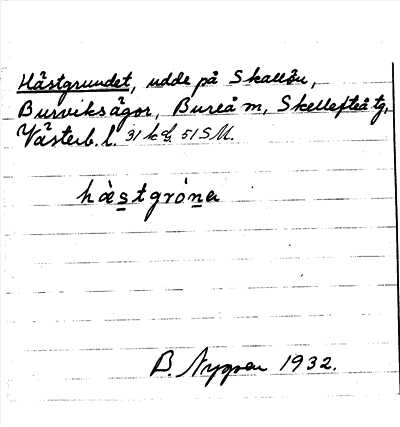 Hästgrundet, udde på Skallön,
Burviksägor, Bureå m, Skellefteå tg,
Västerb. l. 31 k d 51 SM.
hàstgróna
B. Nygren 1932.